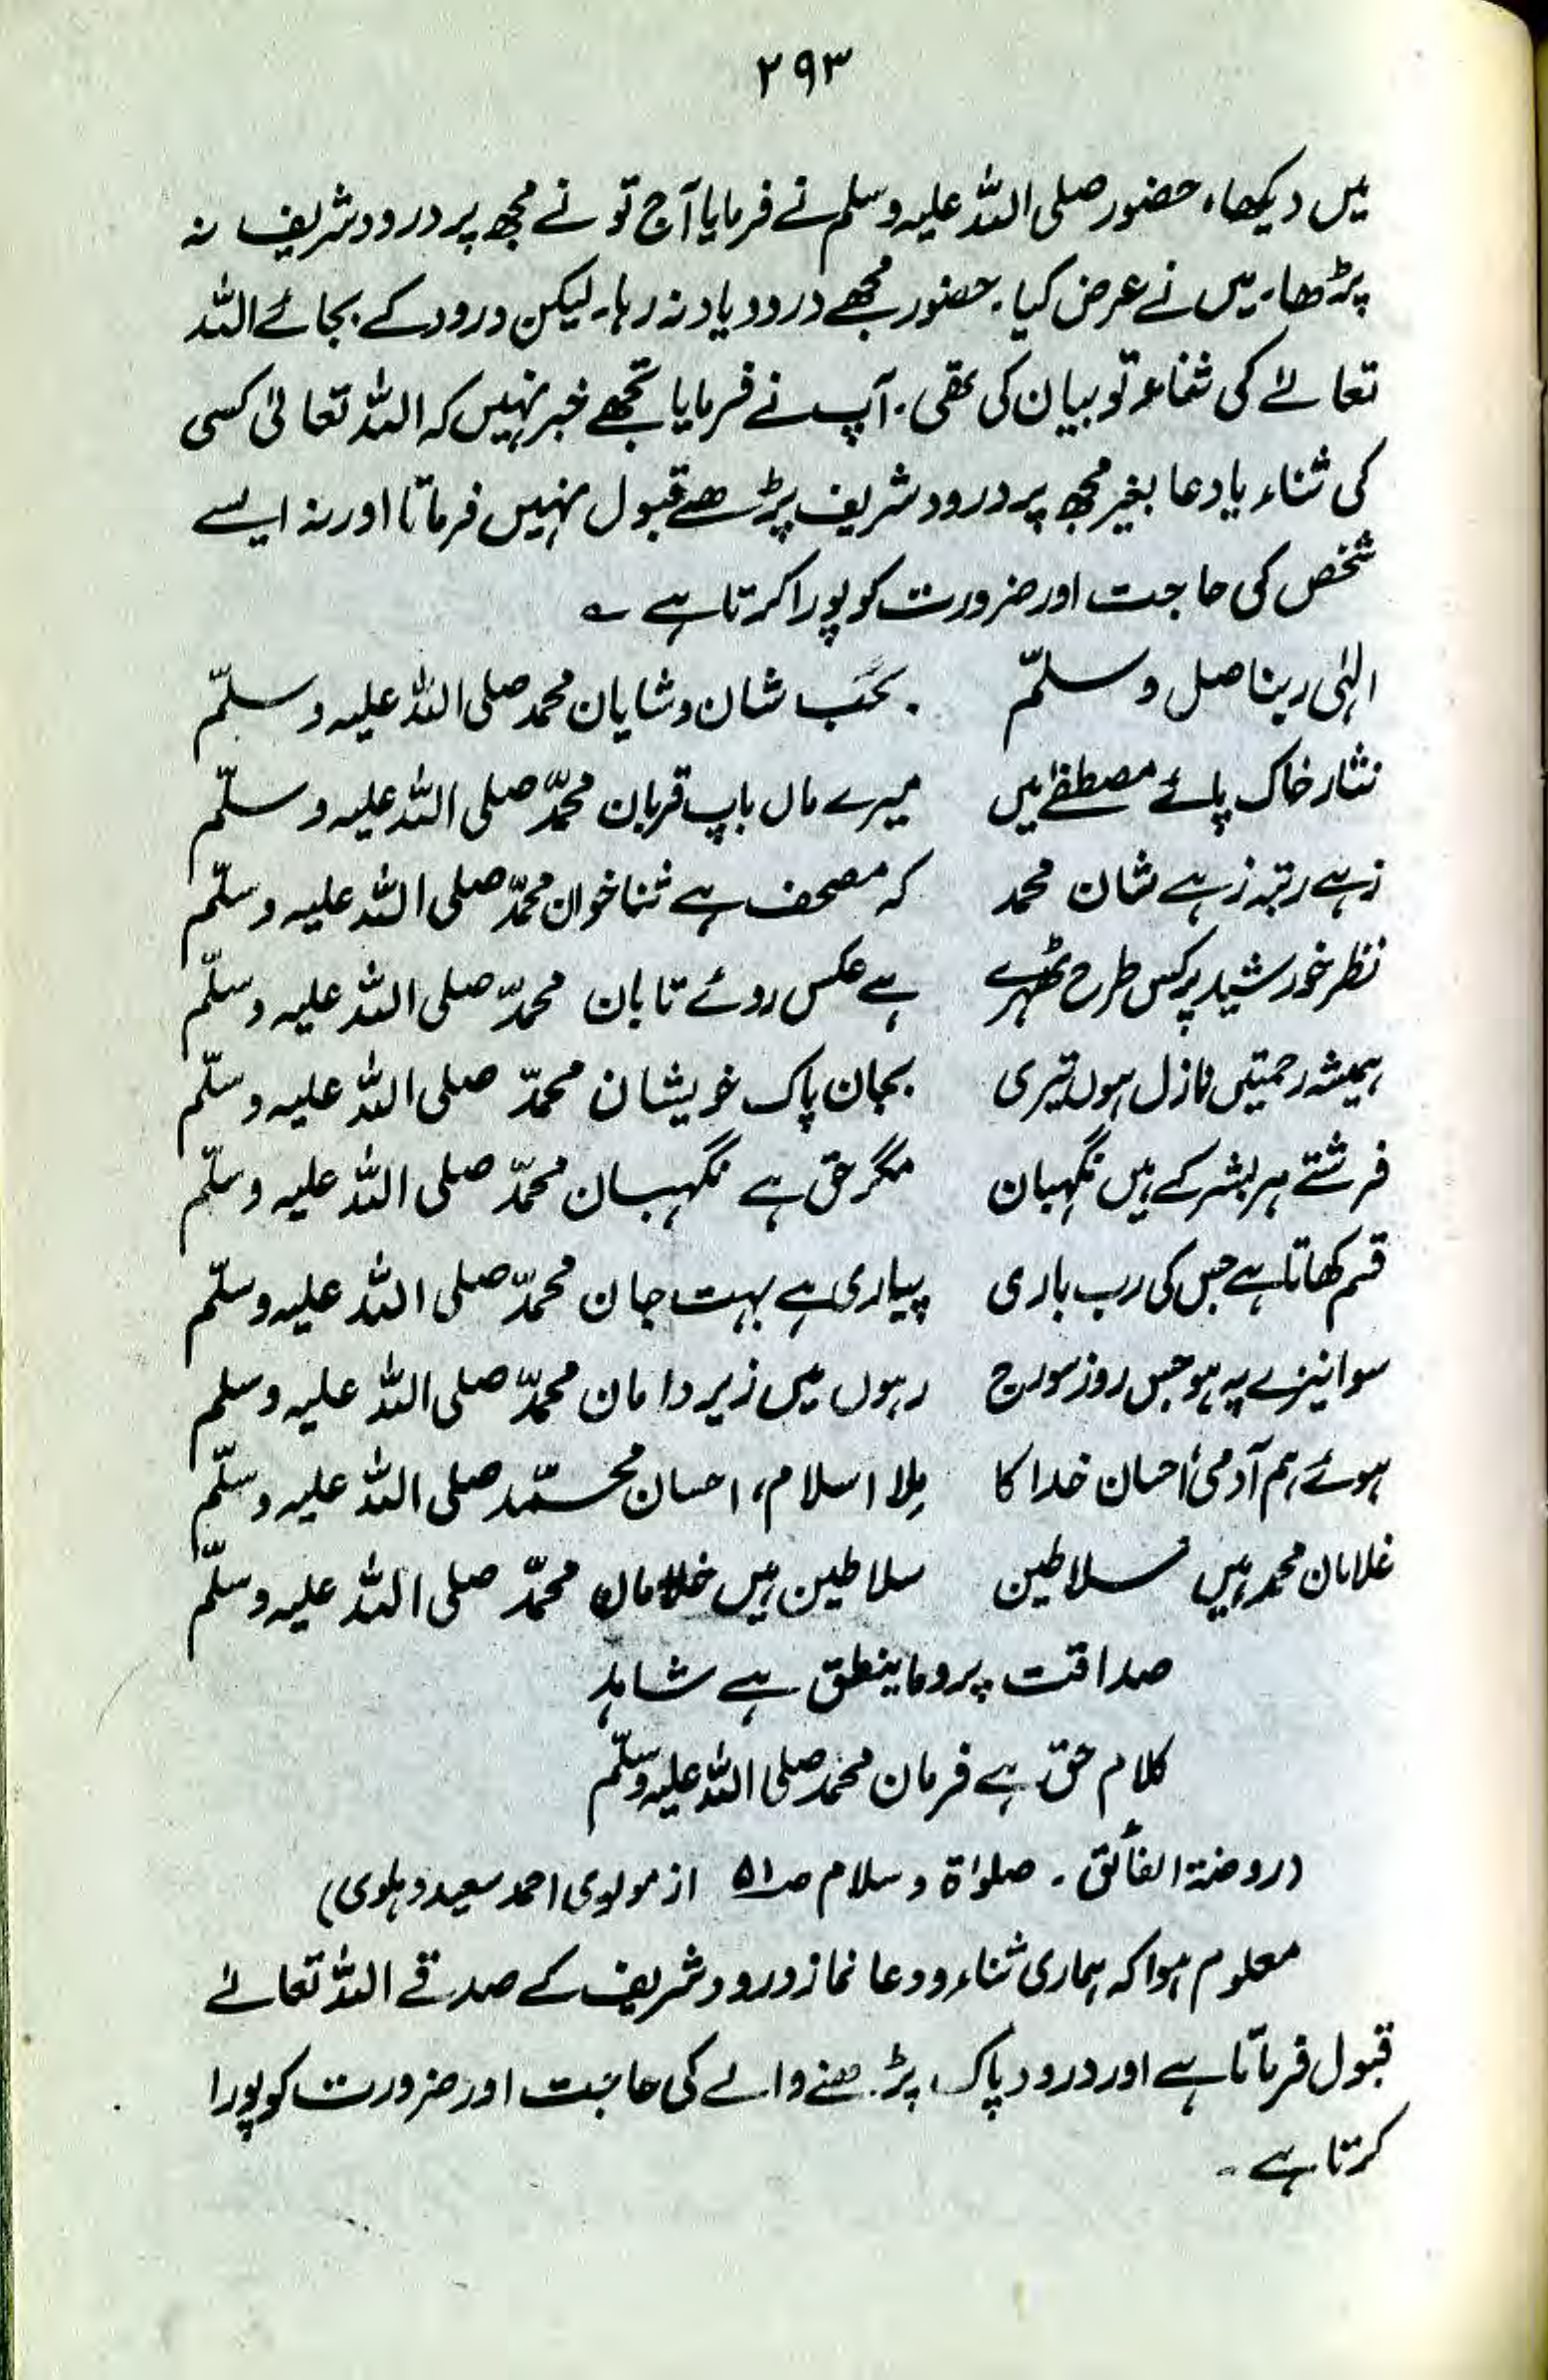 ۲۹۳
میں دیکھا، حضور صلی اللہ علیہ وسلم نے فرمایا آج تو نے مجھ پر درود شریف نہ
پڑھا۔ میں نے عرض کیا۔ حضور مجھے درود یاد نہ رہا۔ لیکن درود کے بجائے اللہ
تعالےٰ کی ثناء تو بیان کی تھی۔ آپ نے فرمایا تجھے خبر نہیں کہ اللہ تعالیٰ کسی
کی ثناء یا دعا بغیر مجھ پر درود شریف پڑھے قبول نہیں فرماتا اور نہ ایسے
شخص کی حاجت اور ضرورت کو پورا کرتا ہے ؎
الہٰی ربنا صل وسلّم بحَب شان و شایان محمد صلی اللہ علیہ وسلّم
نثار خاک پائے مصطفےٰ میں میرے ماں باپ قربان محمّد صلی اللہ علیہ وسلّم
زہے رتبہ زہے شان محمد کہ مصحف ہے ثنا خوان محمّد صلی اللہ علیہ وسلّم
نظر خورشید پر کس طرح ٹھہرے ہے عکس روئے تابان محمّد صلی اللہ علیہ وسلّم
ہمیشہ رحمتیں نازل ہوں تیری بجان پاک خویشان محمّد صلی اللہ علیہ وسلّم
فرشتے ہر بشر کے ہیں نگہبان مگر حق ہے نگہبان محمّد صلی اللہ علیہ وسلّم
قسم کھاتا ہے جس کی رب باری پیاری ہے بہت جان محمّد صلی اللہ علیہ وسلّم
سوا نیزے پہ ہو جس روز سورج رہوں میں زیر دامان محمّد صلی اللہ علیہ وسلم
ہوئے ہم آدمی احسان خدا کا مِلا اسلام، احسان محمّد صلی اللہ علیہ وسلّم
غلامان محمد ہیں سلاطین سلاطین ہیں غلامان محمّد صلی اللہ علیہ وسلّم
صداقت پر وما ینطق ہے شاہد
کلام حق ہے فرمان محمد صلی اللہ علیہ وسلّم
(روضۃ الفائق۔ صلوٰۃ وسلام صـ۵۱ از مولوی احمد سعید دہلوی)
معلوم ہوا کہ ہماری ثناء و دعا نماز درود شریف کے صدقے اللہ تعالےٰ
قبول فرماتا ہے اور درود پاک پڑھنے والے کی حاجت اور ضرورت کو پورا
کرتا ہے۔